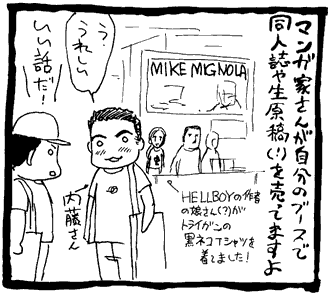 マンガ家さんが自分のブースで
同人誌や生原稿(!)を売ってますよ
MIKE MIGNOLA
う?
うれしい
いい話だ!
内藤さん
HELLBOYの作者
の娘さん(?)が
トライガンの
黒ネコTシャツを
着てました!